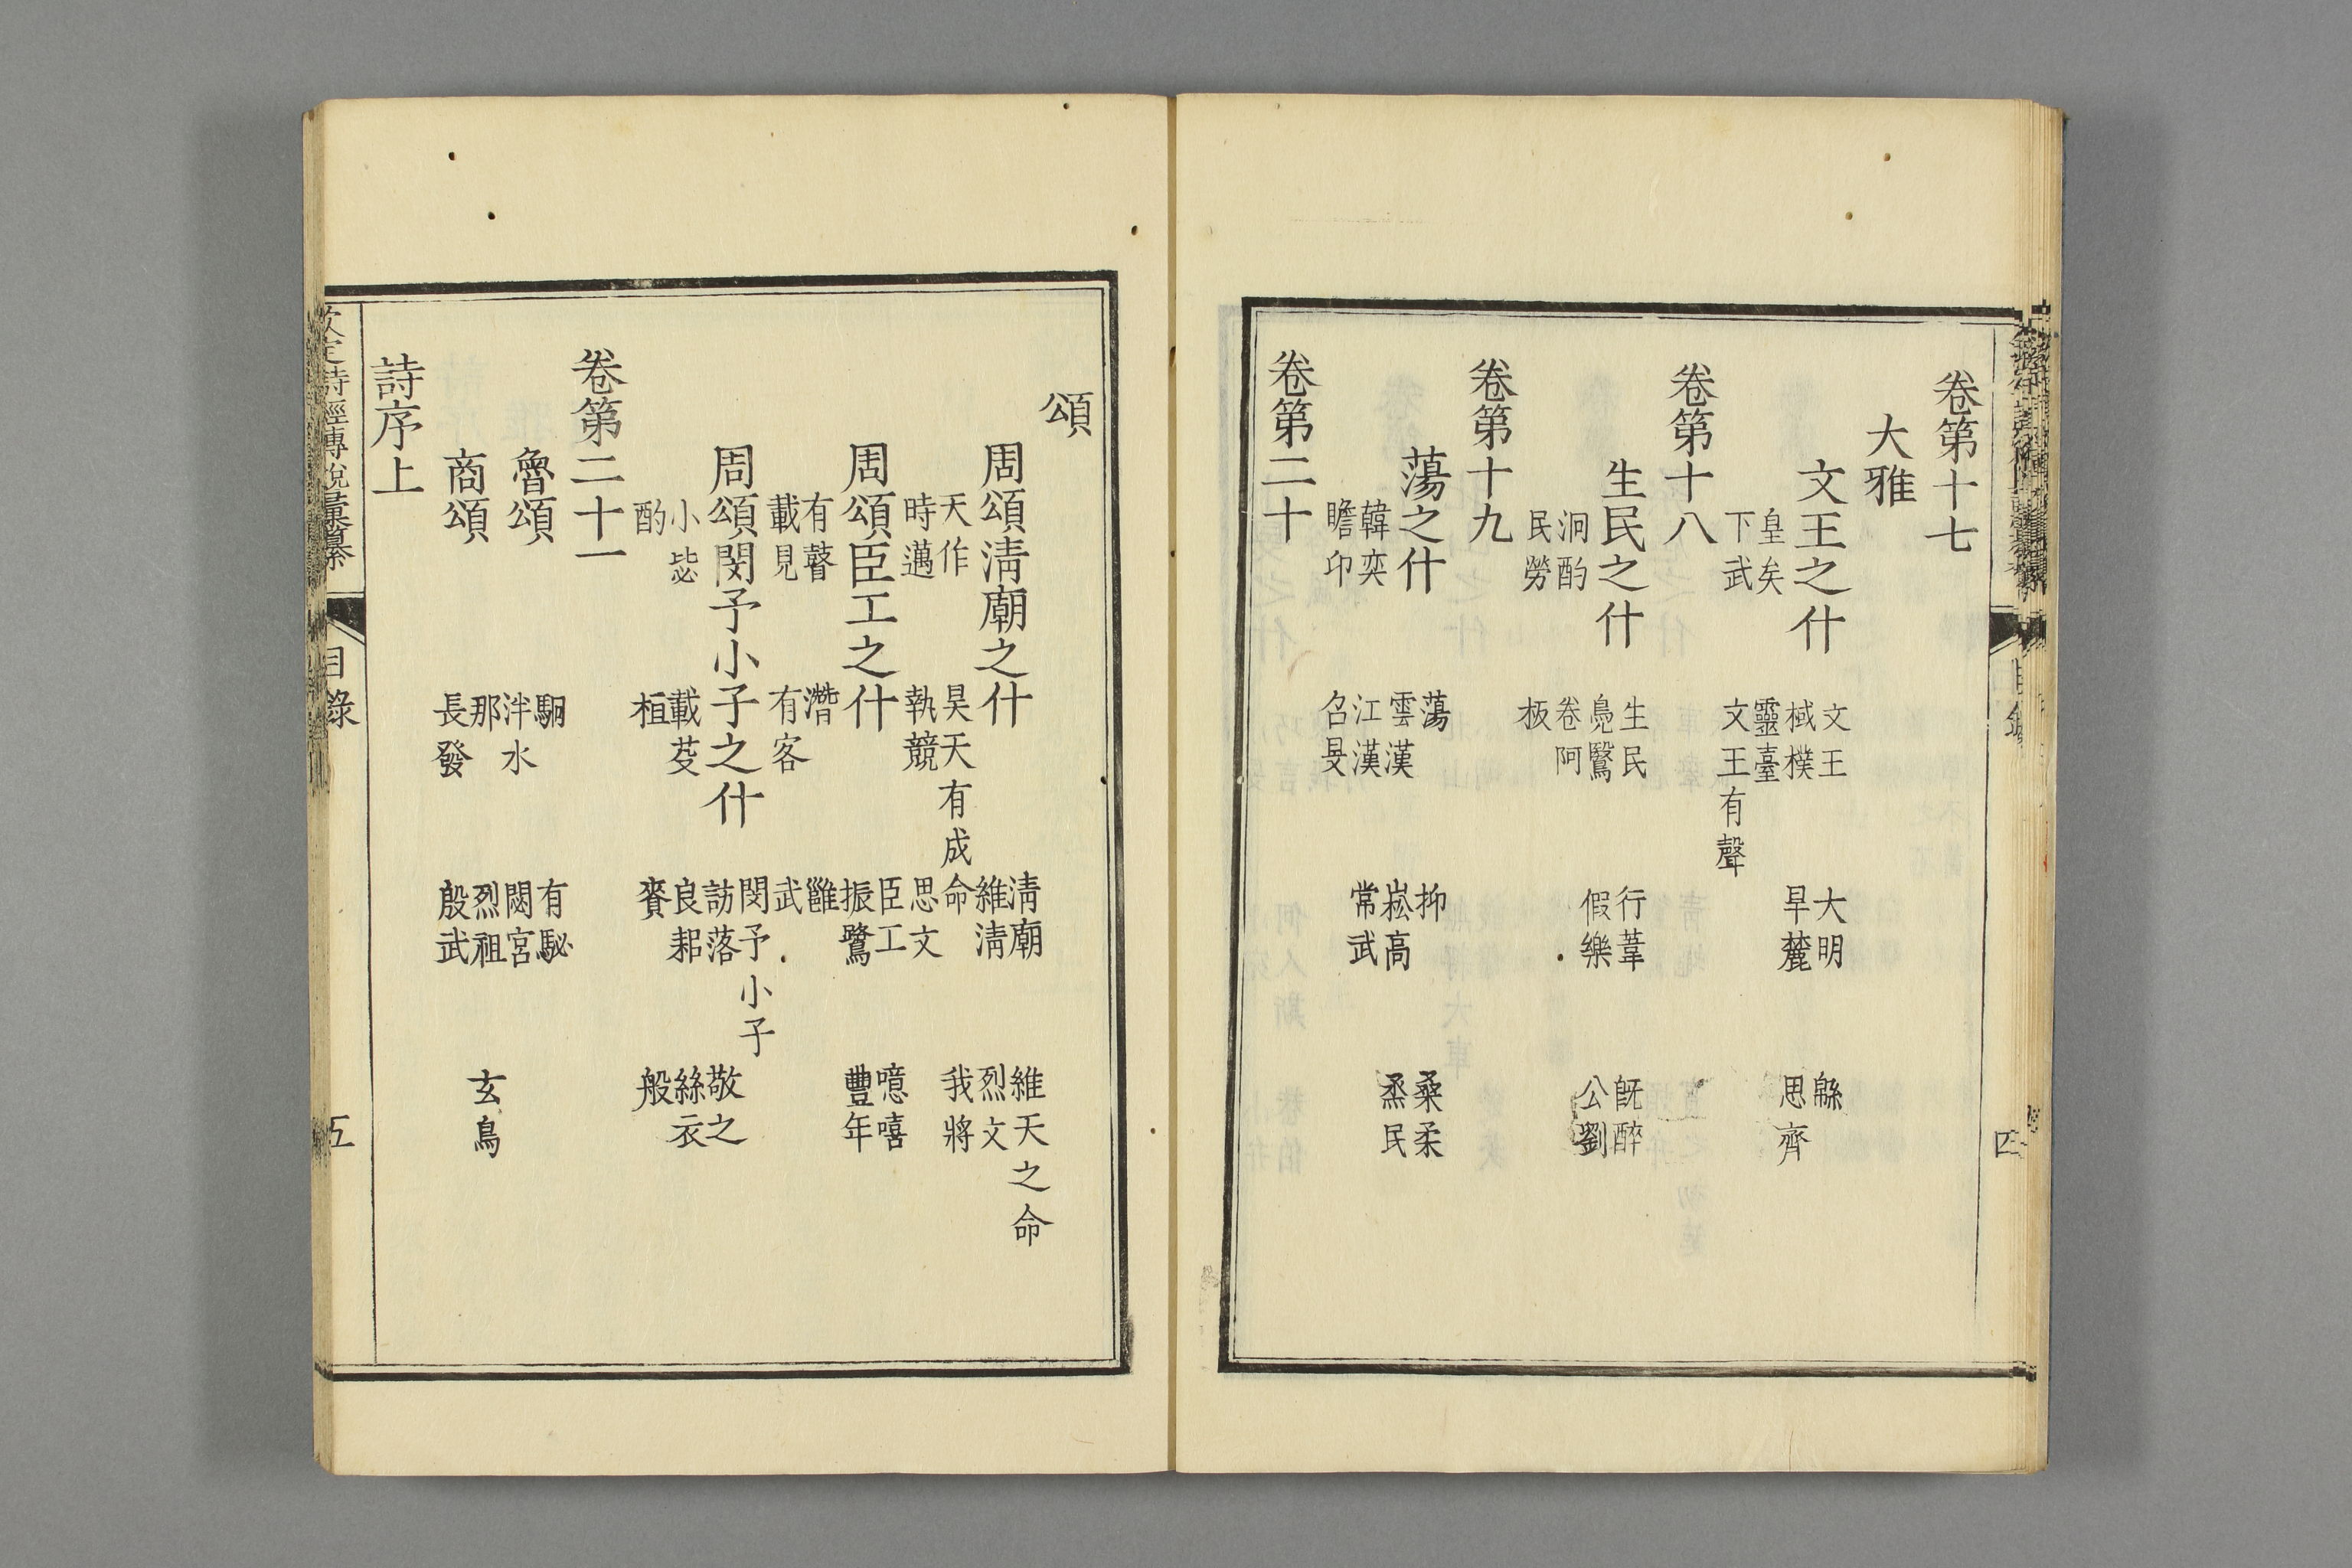 卷第十七
大雅
文王之什 文王 大明 緜
棫樸 旱麓 思齊
皇矣 靈臺
下武 文王有聲
卷第十八
生民之什 生民 行葦 既醉
鳧鷖 假樂 公劉
泂酌 卷阿
民勞 板
卷第十九
蕩之什 蕩 抑 桑柔
雲漢 崧高 烝民
韓奕 江漢 常武
瞻卬 召旻
卷第二十
頌
周頌清廟之什 清廟 維天之命
維清 烈文
天作 昊天有成命 我將
時邁 執競 思文
周頌臣工之什 臣工 噫嘻
振鷺 豐年
有瞽 潛 雝
載見 有客 武
周頌閔予小子之什 閔予小子
訪落 敬之
小毖 載芟 良耜 絲衣
酌 桓 賚 般
卷第二十一
魯頌 駉 有駜
泮水 閟宮
商頌 那 烈祖 玄鳥
長發 殷武
詩序上
欽定詩經傳說彙纂 目錄 五